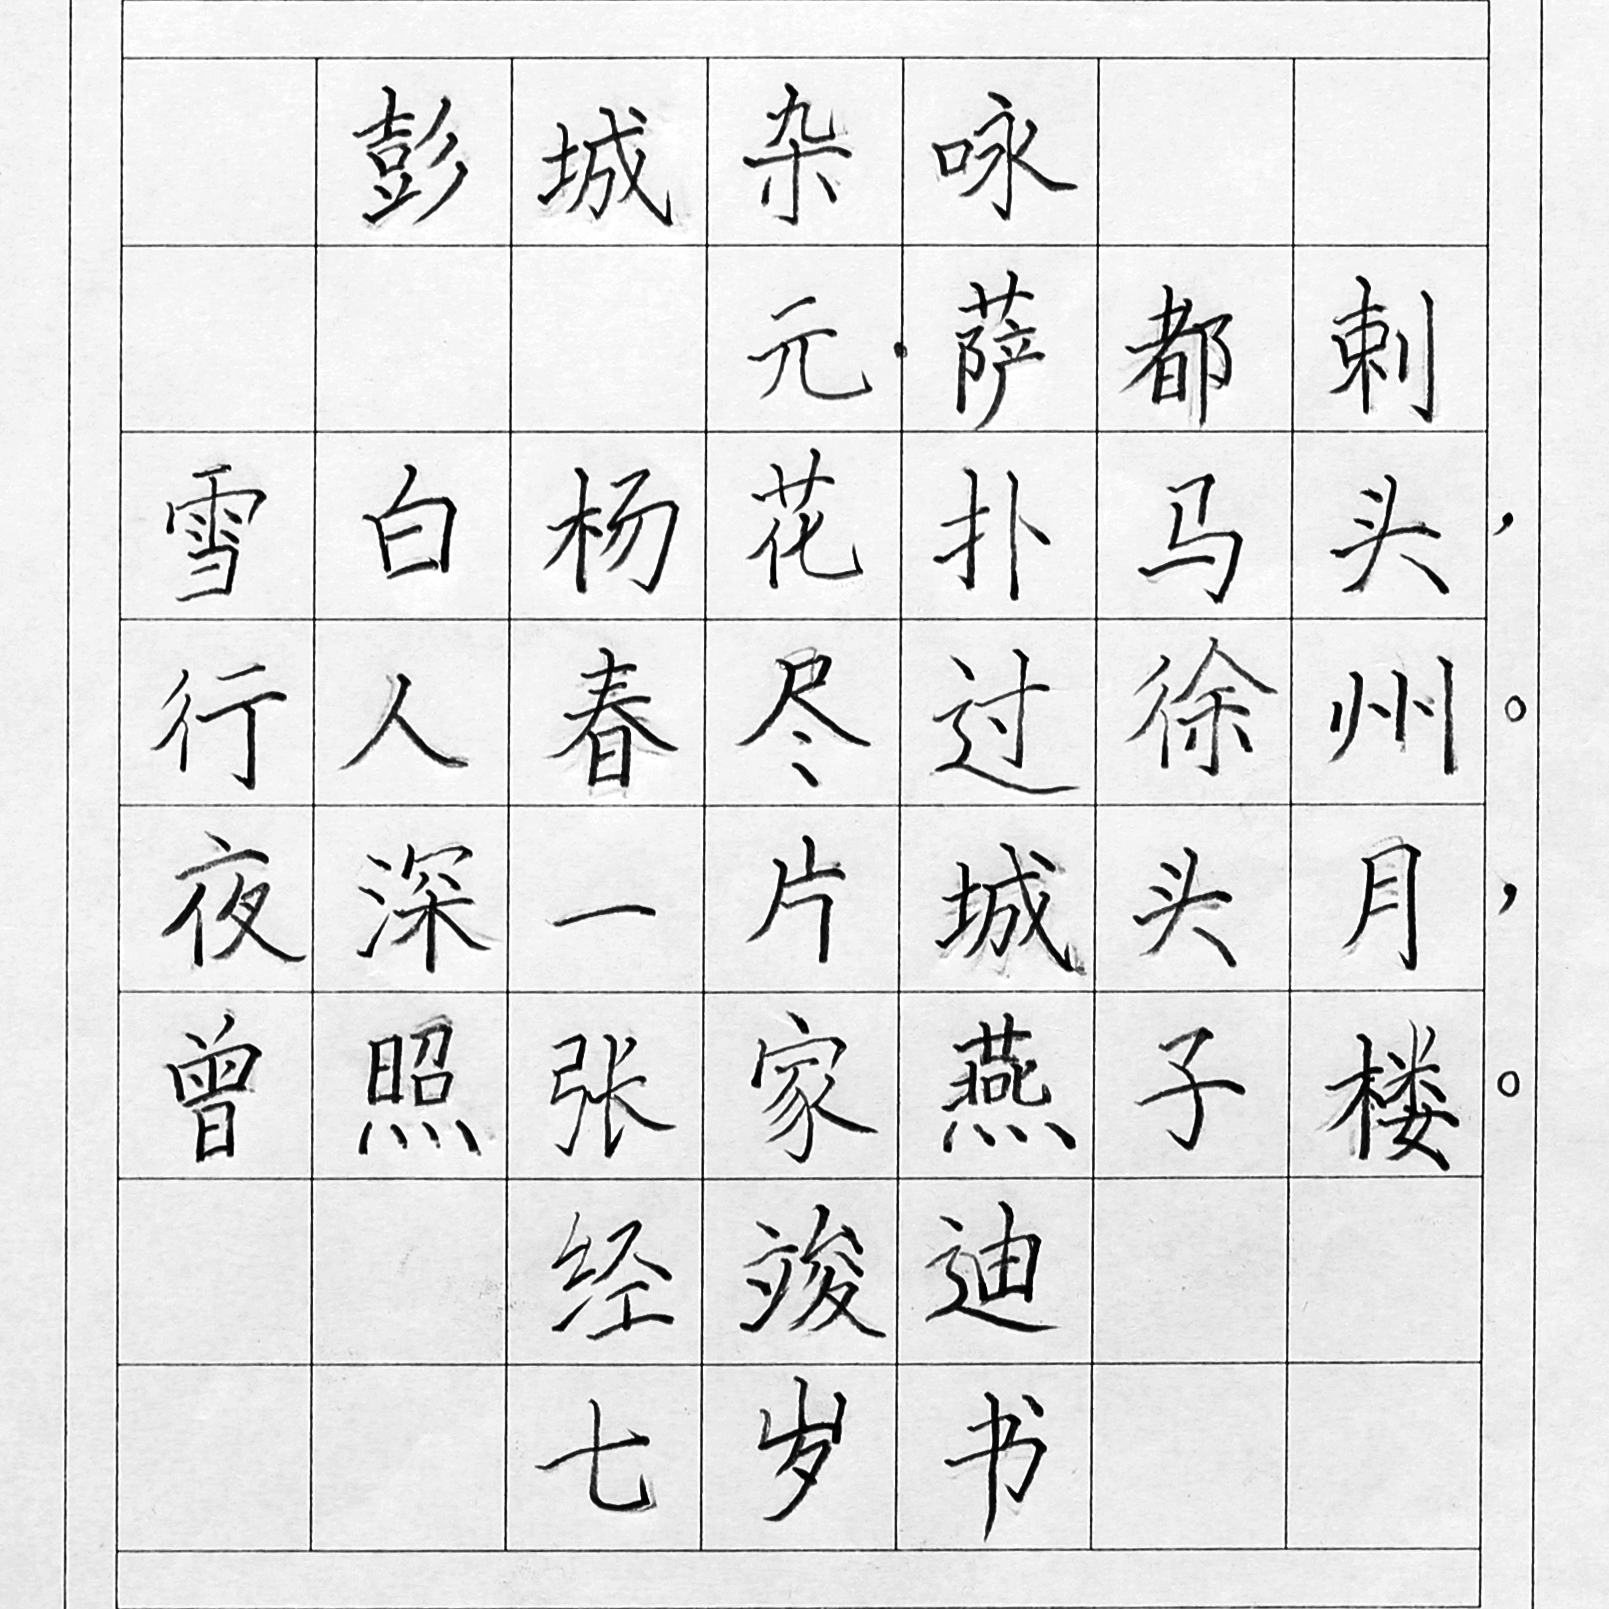 彭城杂咏
元·萨都剌
雪白杨花扑马头，
行人春尽过徐州。
夜深一片城头月，
曾照张家燕子楼。
经竣迪
七岁书